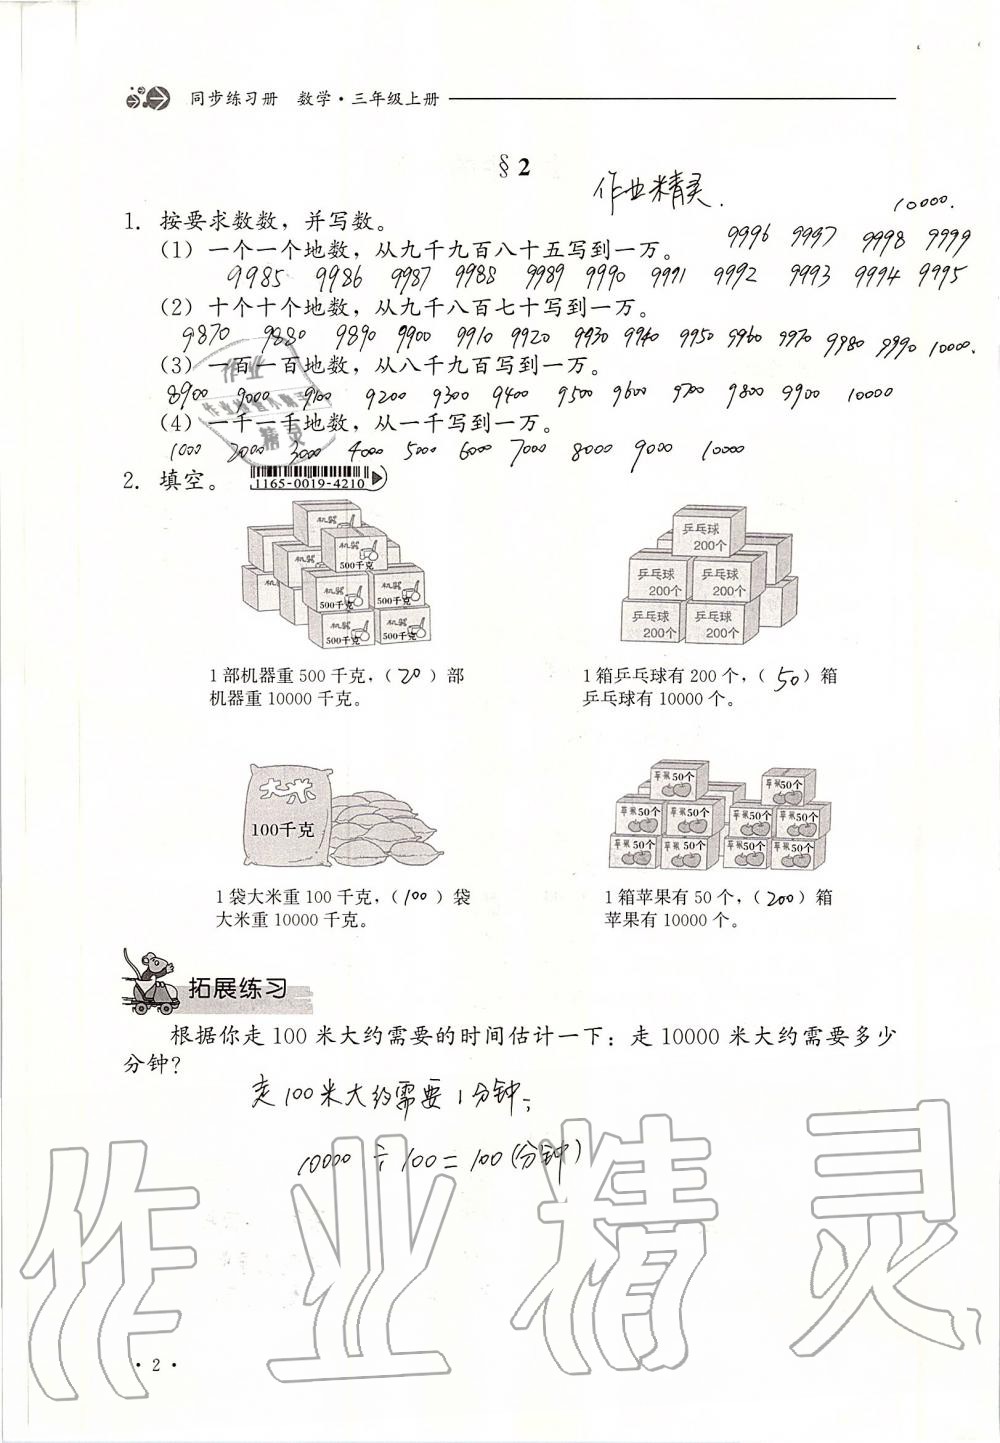 同步练习册 数学·三年级上册
§2
作业精灵.
10000.
1. 按要求数数，并写数。
9996 9997 9998 9999
（1）一个一个地数，从九千九百八十五写到一万。
9985 9986 9987 9988 9989 9990 9991 9992 9993 9994 9995
（2）十个十个地数，从九千八百七十写到一万。
9870 9880 9890 9900 9910 9920 9930 9940 9950 9960 9970 9980 9990 10000.
（3）一百一百地数，从八千九百写到一万。
8900 9000 9100 9200 9300 9400 9500 9600 9700 9800 9900 10000
（4）一千一千地数，从一千写到一万。
1000 2000 3000 4000 5000 6000 7000 8000 9000 10000
2. 填空。
1165-0019-4210
机器
机器
500千克
机器
500千克
机器
500千克
机器
500千克
机器
500千克
乒乓球
200个
乒乓球
200个
乒乓球
200个
乒乓球
200个
乒乓球
200个
1部机器重500千克，（20）部
机器重10000千克。
1箱乒乓球有200个，（50）箱
乒乓球有10000个。
大米
100千克
苹果50个
苹果50个
苹果50个
苹果50个
苹果50个
苹果50个
苹果50个
苹果50个
苹果50个
苹果50个
1袋大米重100千克，（100）袋
大米重10000千克。
1箱苹果有50个，（200）箱
苹果有10000个。
拓展练习
根据你走100米大约需要的时间估计一下：走10000米大约需要多少
分钟？
走100米大约需要1分钟;
10000÷100=100(分钟)
作业精灵
·2·